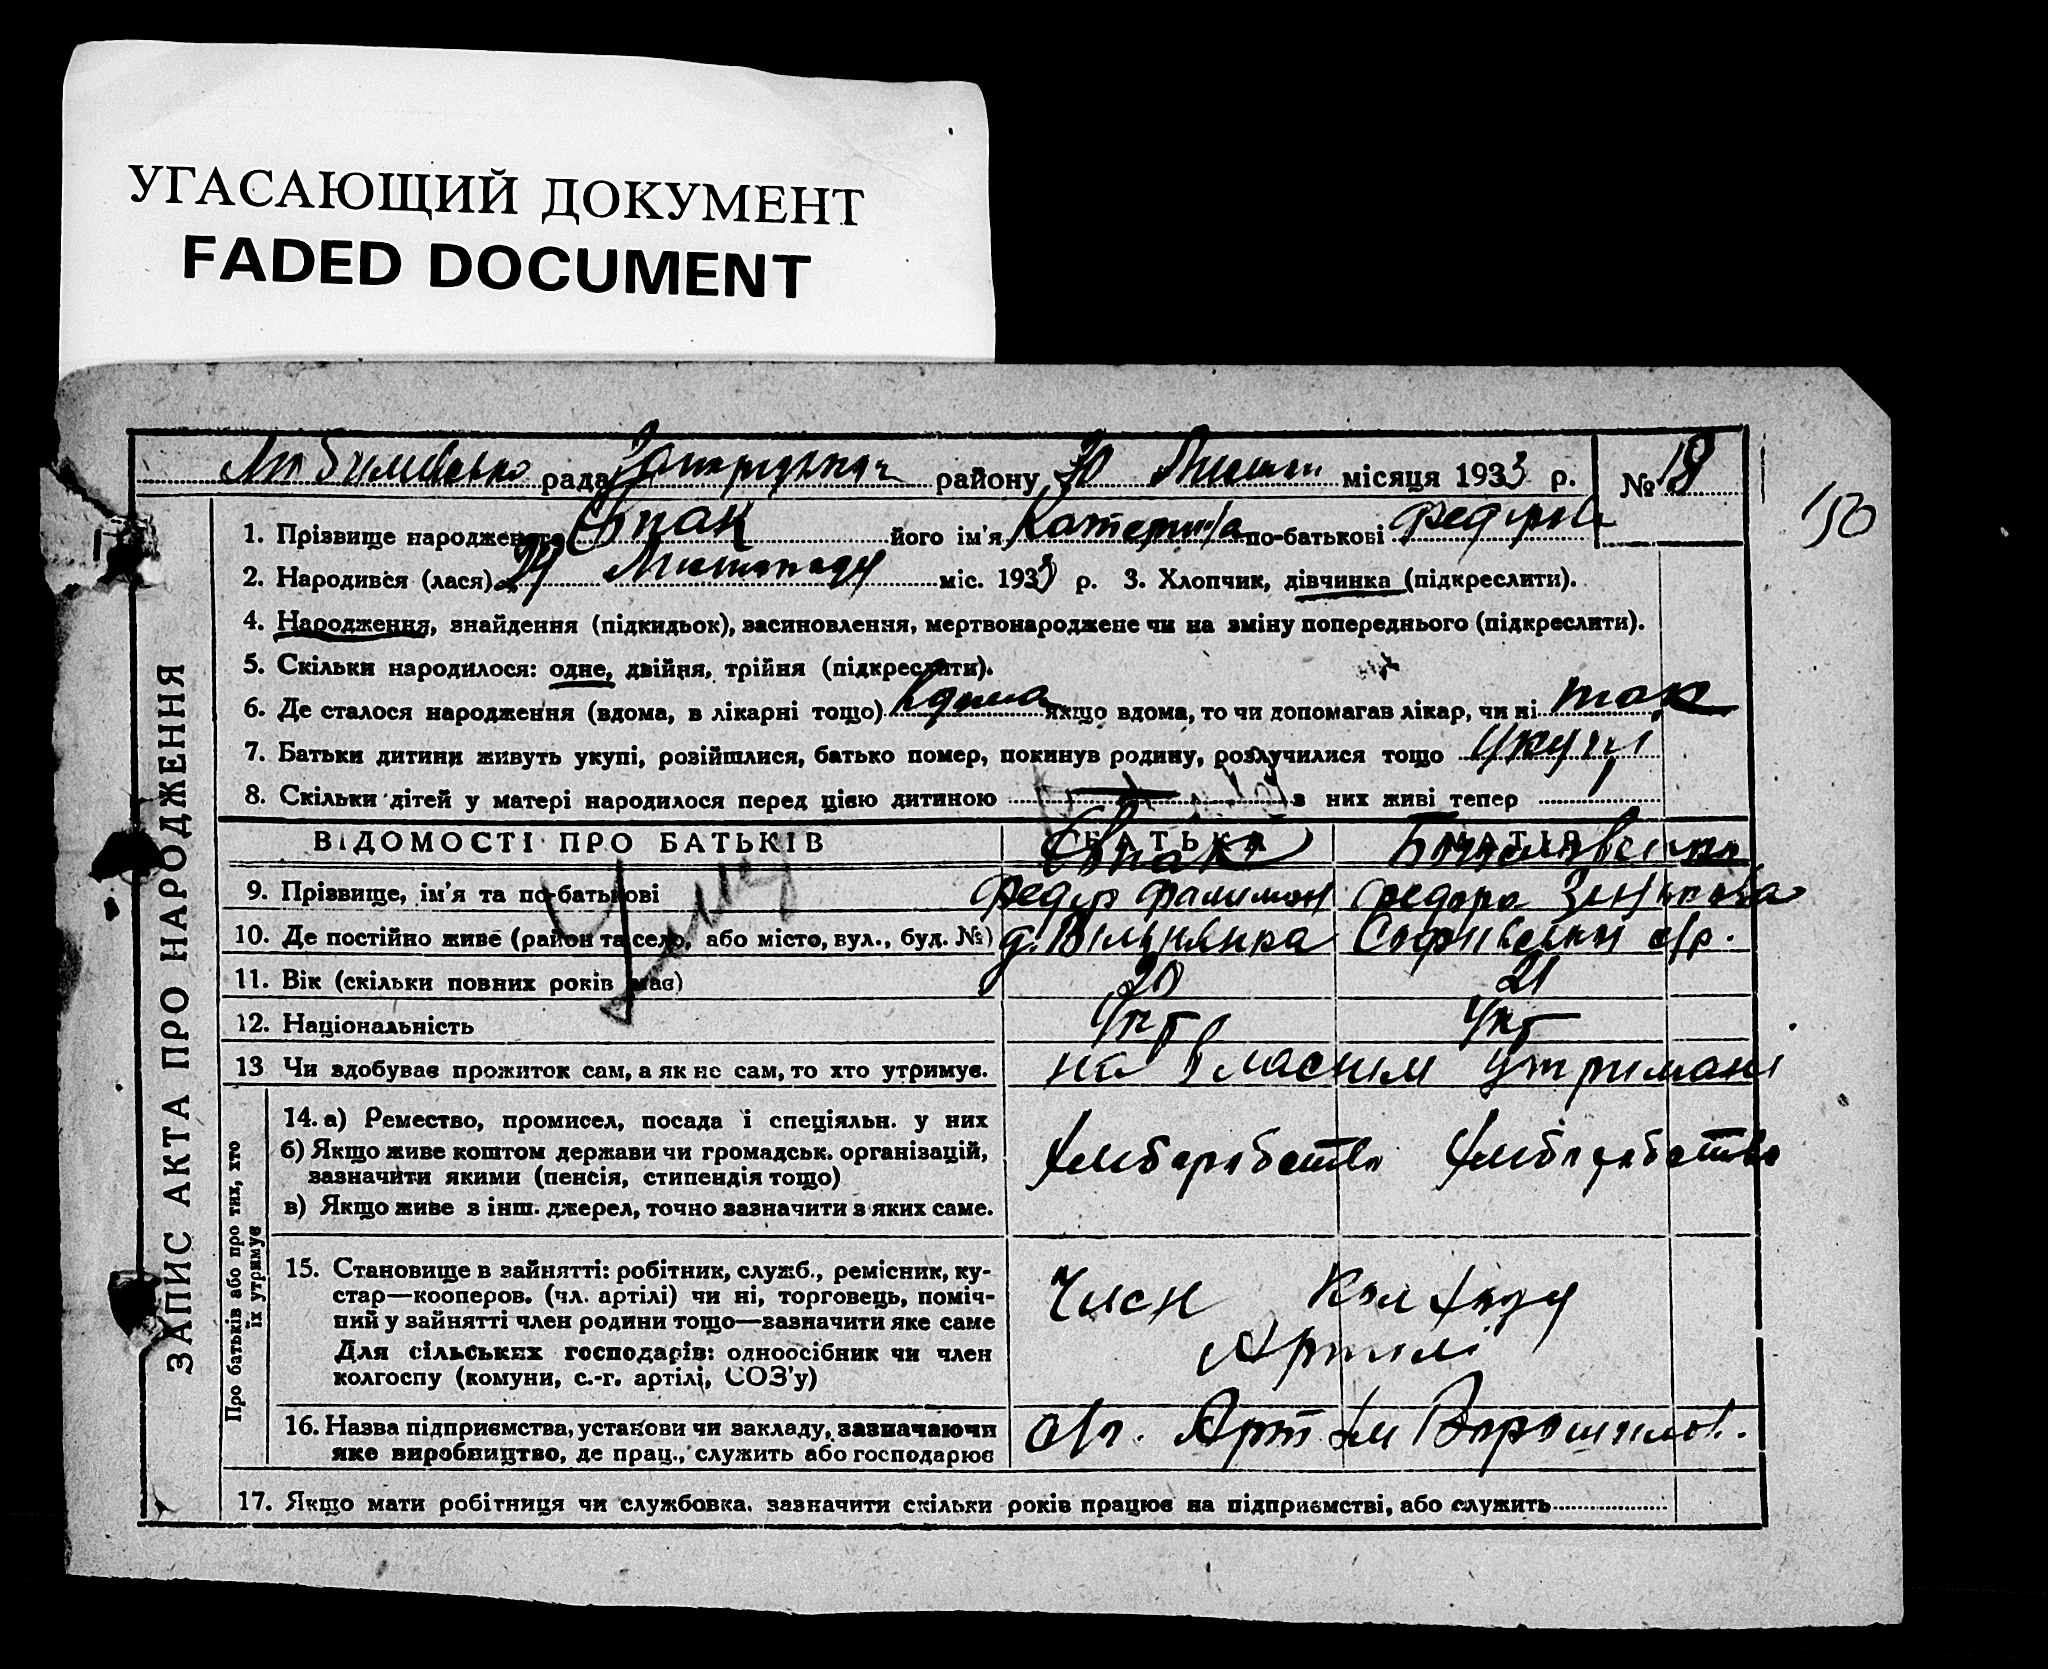 УГАСАЮЩИЙ ДОКУМЕНТ
FADED DOCUMENT
рада району 30 місяця 1933 р. № 18
150
1. Прізвище народженого Спак його ім'я Катерина по-батькові
2. Народився (лася) 24 Листопаду міс. 1933 р. 3. Хлопчик, дівчинка (підкреслити).
4. Народження, знайдення (підкидьок), засиновлення, мертвонароджене чи на зміну попереднього (підкреслити).
5. Скільки народилося: одне, двійня, трійня (підкреслити).
6. Де сталося народження (вдома, в лікарні тощо) вдома якщо вдома, то чи допомагав лікар, чи ні так
7. Батьки дитини живуть укупі, розійшлися, батько помер, покинув родину, розлучилися тощо укупі
8. Скільки дітей у матері народилося перед цією дитиною — з них живі тепер
ЗАПИС АКТА ПРО НАРОДЖЕННЯ
ВІДОМОСТІ ПРО БАТЬКІВ БАТЬКА МАТІР
Спак
9. Прізвище, ім'я та по-батькові Федір Федора
10. Де постійно живе (район та село, або місто, вул., буд. №)
11. Вік (скільки повних років має) 20 21
12. Національність Укр Укр
13 Чи здобуває прожиток сам, а як не сам, то хто утримує. на власним утримані
Про батьків або про тих, хто
їх утримує
14. а) Ремество, промисел, посада і спеціяльн. у них
б) Якщо живе коштом держави чи громадськ. організацій, Хліборобство Хліборобство
зазначити якими (пенсія, стипендія тощо)
в) Якщо живе з інш. джерел, точно зазначити з яких саме.
15. Становище в зайнятті: робітник, служб., ремісник, ку-
стар—кооперов. (чл. артілі) чи ні, торговець, поміч- Член
ний у зайнятті член родини тощо—зазначити яке саме
Для сільських господарів: одноосібник чи член Артілі
колгоспу (комуни, с.-г. артілі, СОЗ'у)
16. Назва підприємства, установи чи закладу, зазначаючи Арт ім Ворошилов.
яке виробництво, де прац., служить або господарює
17. Якщо мати робітниця чи службовка, зазначити скільки років працює на підприємстві, або служить